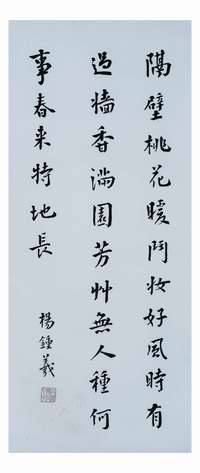 隔壁桃花暖鬥妝好風時有
過墻香滿園芳艸無人種何
事春来特地長
楊鍾羲